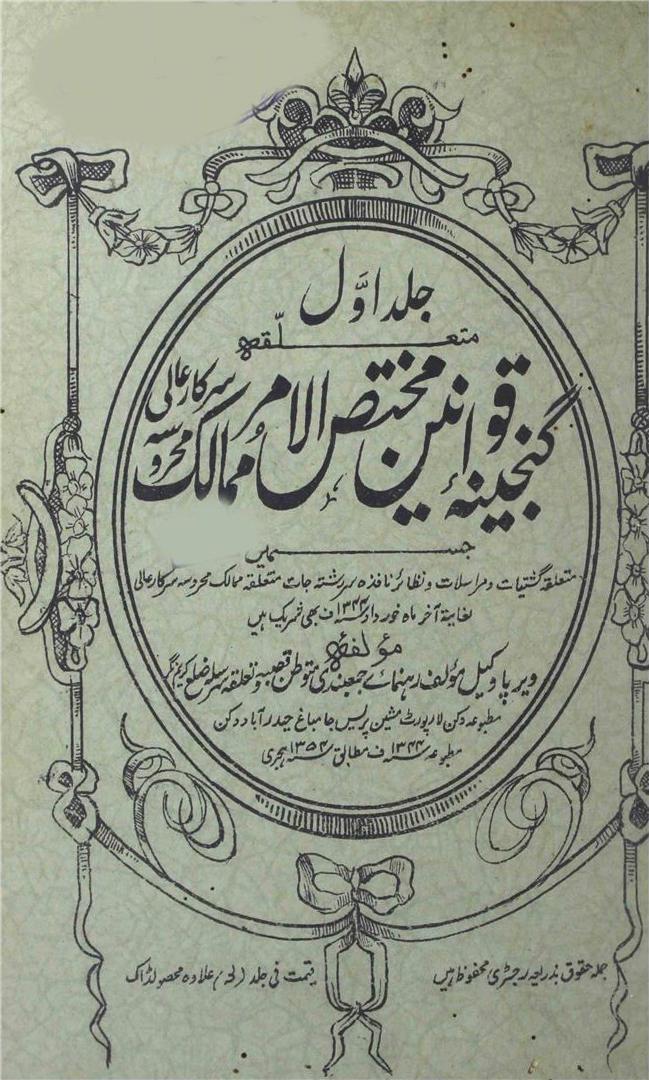 جلد اوّل
متعلّقه
گنجینۂ قوانین مختص الامر ممالک محروسه سرکار عالی
جسمیں
متعلقہ گشتیات و مراسلات و نظائر نافذہ سررشتہ جات متعلقہ ممالک محروسہ سرکار عالی
لغایتہ آخر ماہ خورداد ۱۳۴۴ف بھی شریک ہیں
مؤلفہ
ویرپا وکیل مؤلف رہنمائے جمعبندی متوطن قصبہ و تعلقہ سرسلہ ضلع کریم نگر
مطبوعہ دکن لا رپورٹ مشین پریس جامباغ حیدرآباد دکن
مطبوعہ سنہ ۱۳۴۴ف مطابق سنہ ۱۳۵۴ ہجری
جملہ حقوق بذریعہ رجسٹری محفوظ ہیں
قیمت فی جلد علاوہ محصولڈاک